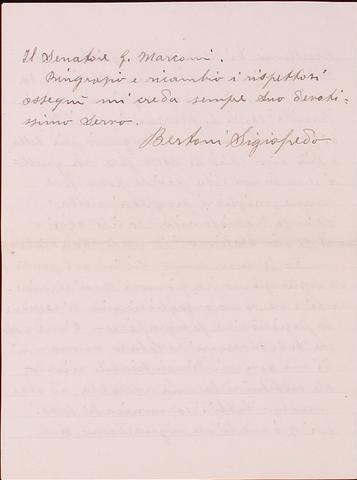 Il Senatore G. Marconi.
Ringrazio e ricambio i rispettosi
ossequi mi creda sempre Suo devotis-
simo Servo.
Bertoni Sigisfredo